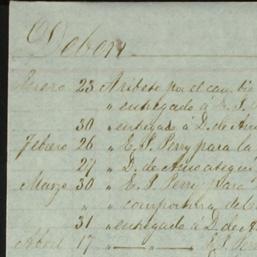 Debe
Enero 23 A ribete por el cambio
" entregado á E. S. P
30 " entregado á D. de Am
Febrero 26 " E. S. Perry para la
27 " D. de Amoategui
Marzo 30 " E. S. Perry para
" compostura de
31 " entregado á D. de A
Abril 17 " — " — E. S. Per